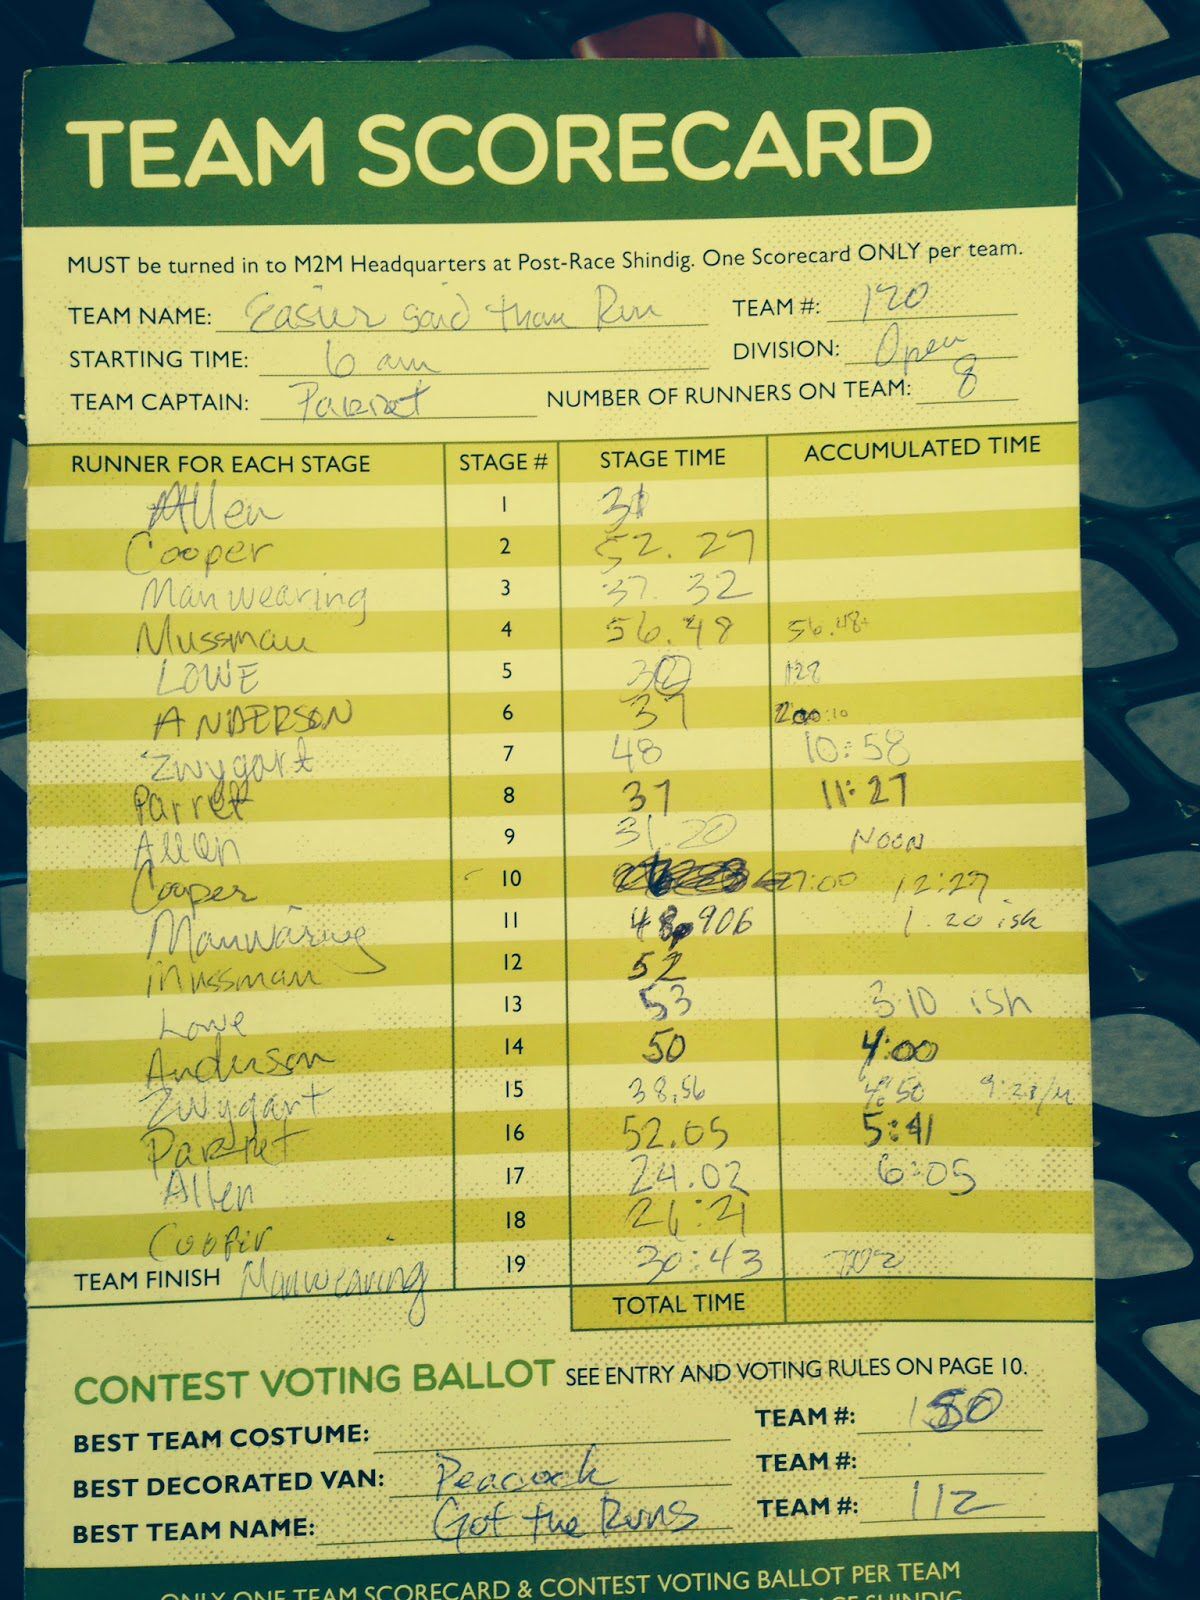 TEAM SCORECARD
MUST be turned in to M2M Headquarters at Post-Race Shindig. One Scorecard ONLY per team.
TEAM NAME: Easier said than Run TEAM #: 120
STARTING TIME: 6 am DIVISION: Open
TEAM CAPTAIN: Parret NUMBER OF RUNNERS ON TEAM: 8
RUNNER FOR EACH STAGE STAGE # STAGE TIME ACCUMULATED TIME
Allen 1 31
Cooper 2 52.27
Manwearing 3 37.32
Mussman 4 56.48 56.48
LOWE 5 128
ANDERSON 6 37
Zwygart 7 48 10:58
Parret 8 37 11:27
Allen 9 31.20 NOON
Cooper 10 27:00 12:27
Manwaring 11 48,906 1.20 ish
Mussman 12 52
Lowe 13 53 3:10 ish
Anderson 14 50 4:00
Zwygart 15 38.56 4:50
Parret 16 52.05 5:41
Allen 17 24.02 6:05
Cooper 18 26:21
TEAM FINISH Manwearing 19 30:43
TOTAL TIME
CONTEST VOTING BALLOT SEE ENTRY AND VOTING RULES ON PAGE 10.
BEST TEAM COSTUME: TEAM #: 180
BEST DECORATED VAN: Peacock TEAM #:
BEST TEAM NAME: Got the Runs TEAM #: 112
ONLY ONE TEAM SCORECARD & CONTEST VOTING BALLOT PER TEAM
RACE SHINDIG